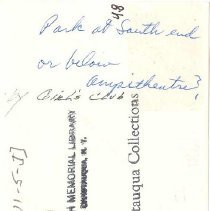 48
Park at South end
or below
Ampitheatre?
by Girl's Club
H MEMORIAL LIBRARY
CHAUTAUQUA, N. Y.
tauqua Collections
11-5-J]